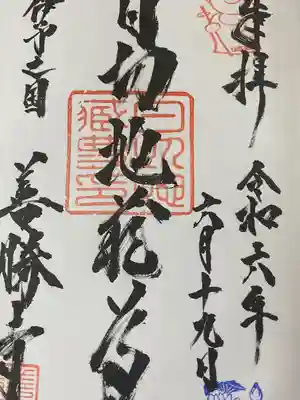 奉拝
令和六年
六月十九日
日切地蔵尊
伊予之国
善勝寺